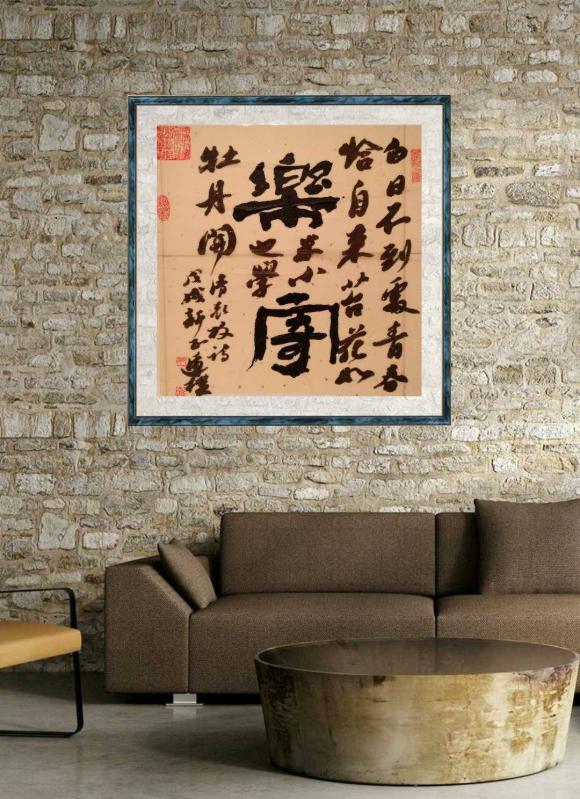 白日不到處青春
恰自来苔花如
樂
米小
也學
牡丹開
清袁枚詩
戊戌